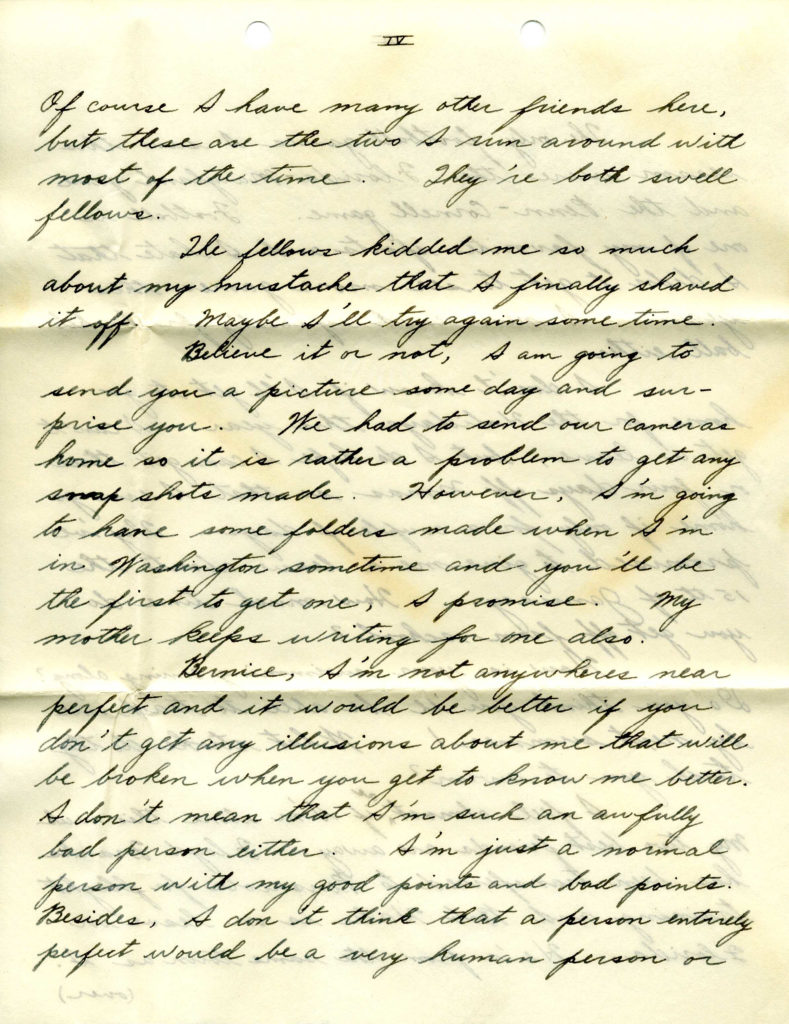 IV
Of course I have many other friends here,
but these are the two I run around with
most of the time. They're both swell
fellows.
The fellows kidded me so much
about my mustache that I finally shaved
it off. Maybe I'll try again some time.
Believe it or not, I am going to
send you a picture some day and sur-
prise you. We had to send our cameras
home so it is rather a problem to get any
snap shots made. However, I'm going
to have some folders made when I'm
in Washington sometime and you'll be
the first to get one, I promise. My
mother keeps writing for one also.
Bernice, I'm not anywheres near
perfect and it would be better if you
don't get any illusions about me that will
be broken when you get to know me better.
I don't mean that I'm such an awfully
bad person either. I'm just a normal
person with my good points and bad points.
Besides, I don't think that a person entirely
perfect would be a very human person or
(over)